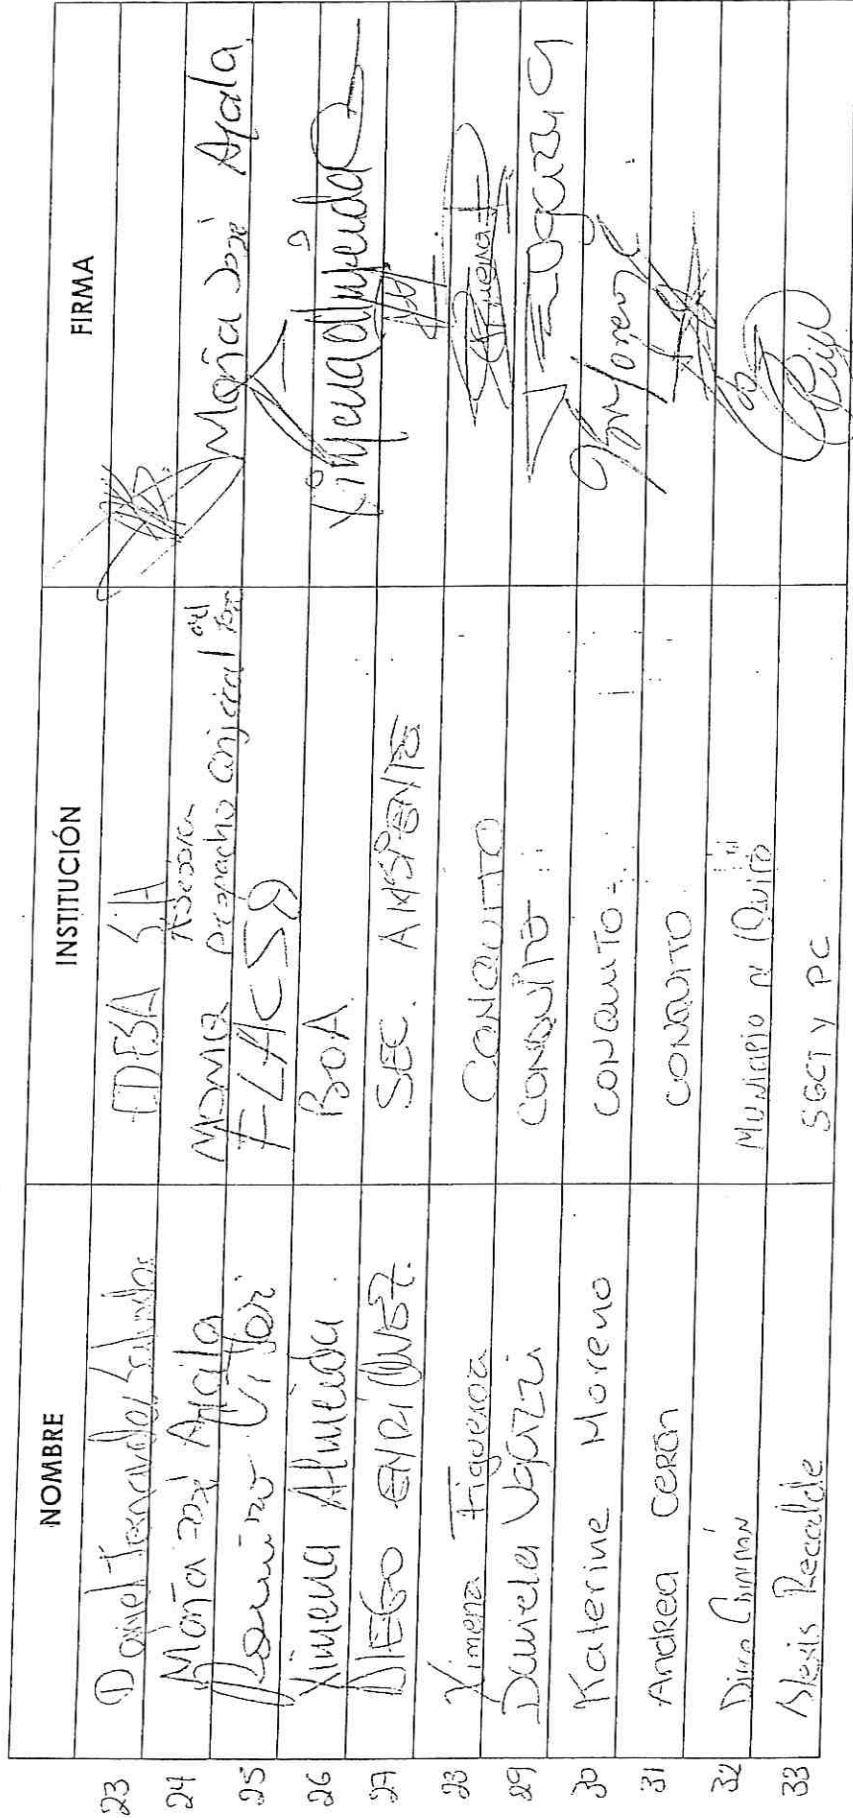 NOMBRE INSTITUCIÓN FIRMA
23 Daniel Fernandez Salvador EDESA S.A
24 María José Ayala MDMQ Asesora Despacho Concejal María José Ayala
25 FLACSO
26 Ximena Almeida BOA Ximena Almeida
27 DIEGO ENRIQUEZ. SEC. AMBIENTE
28 Ximena Figueroa CONQUITO
29 Daniela Ugazzi CONQUITO Ugazzi
30 Katerine Moreno CONQUITO-
31 Andrea Cerón CONQUITO
32 Municipio de Quito
33 Alexis Recalde SGCTYPC